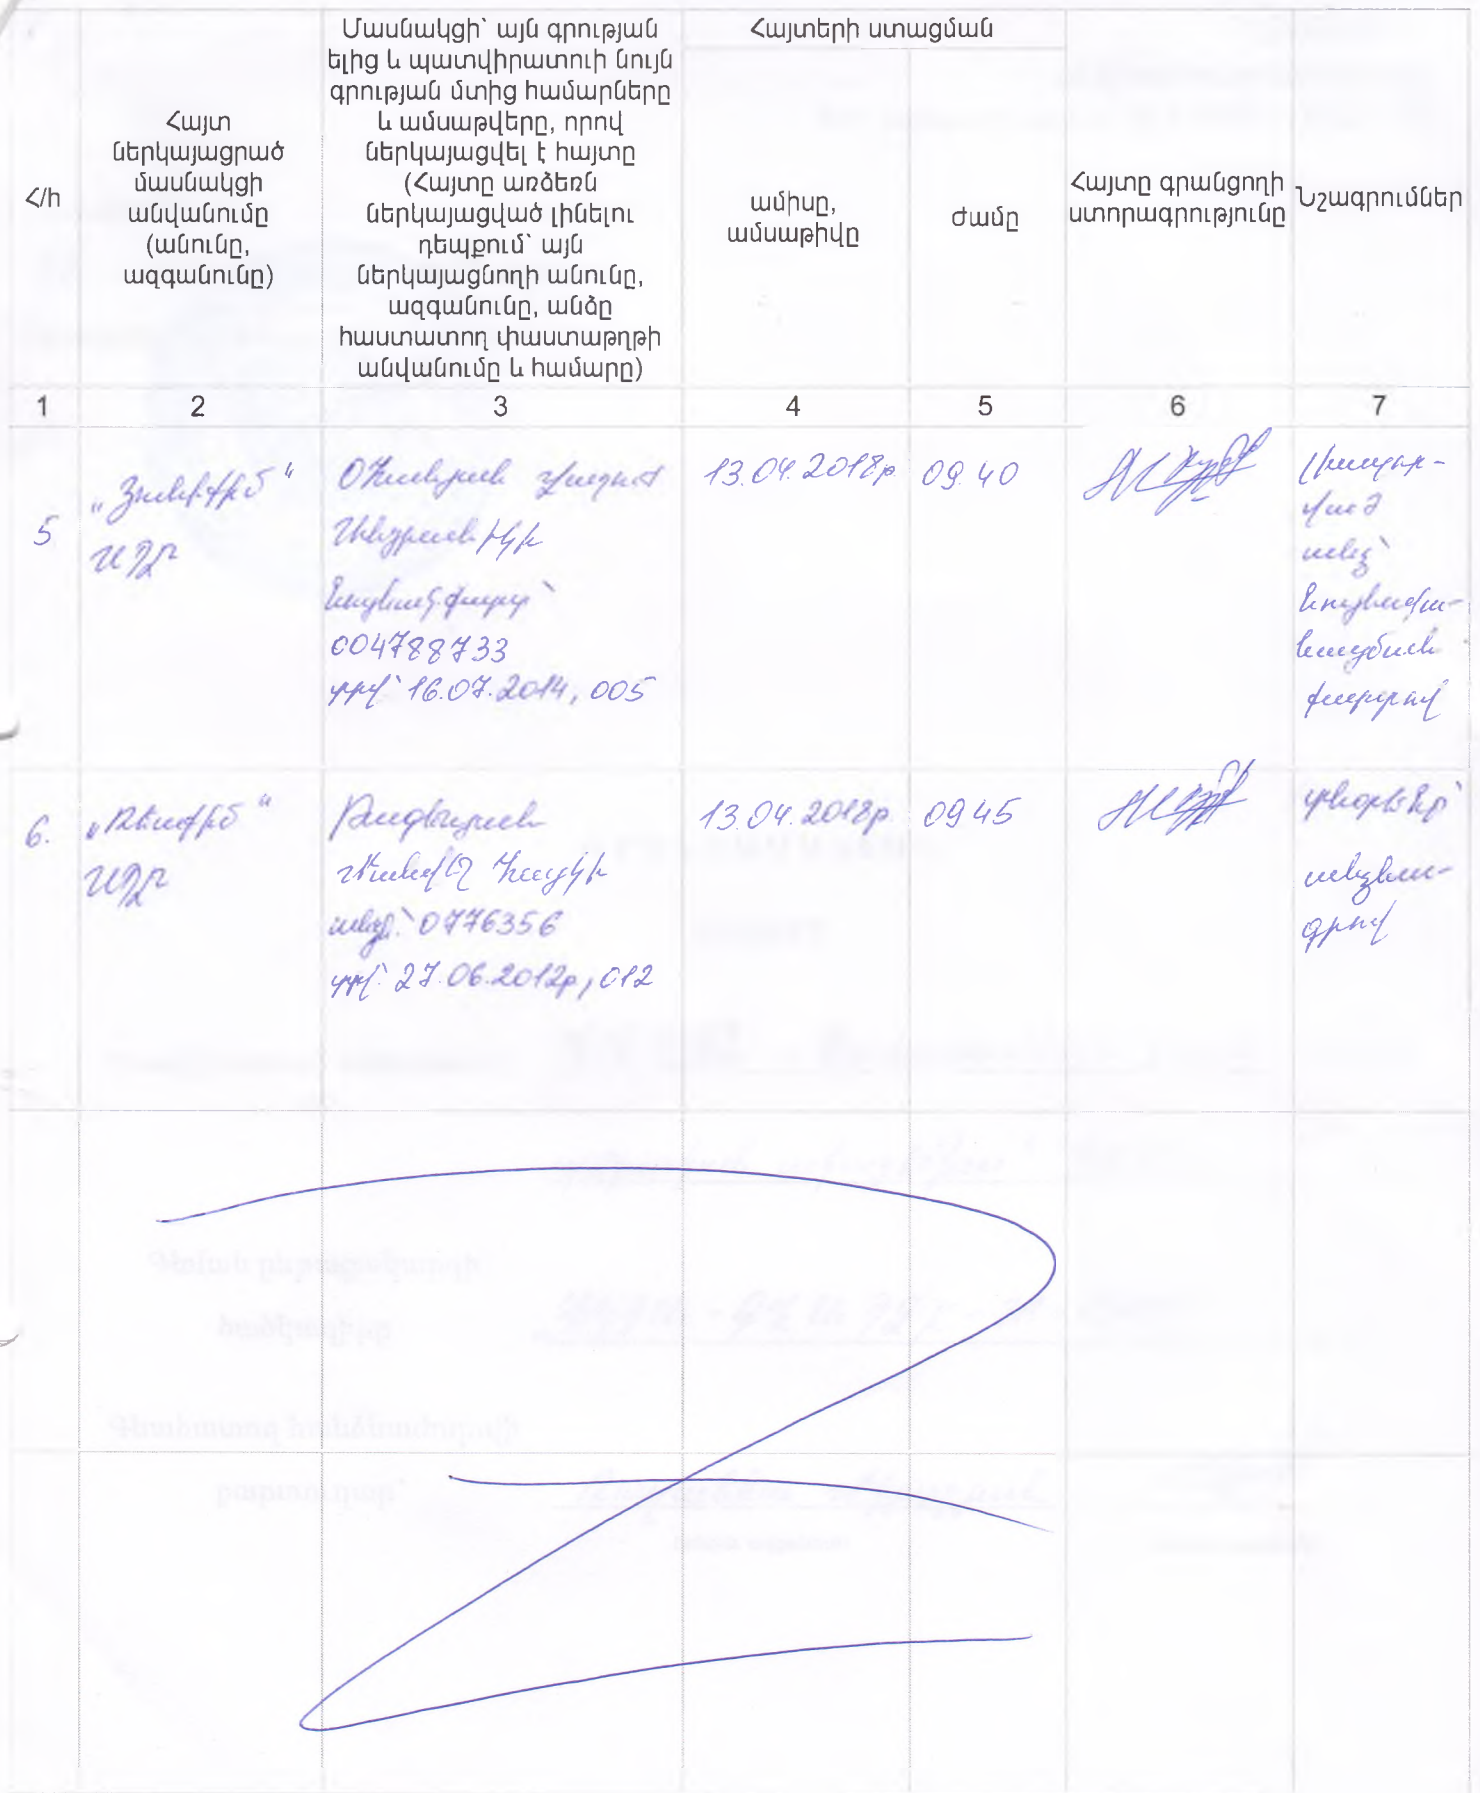 Հ/հ
Հայտ
ներկայացրած
մասնակցի
անվանումը
(անունը,
ազգանունը)
Մասնակցի՝ այն գրության
ելից և պատվիրատուի նույն
գրության մտից համարները
և ամսաթվերը, որով
ներկայացվել է հայտը
(Հայտը առձեռն
ներկայացված լինելու
դեպքում՝ այն
ներկայացնողի անունը,
ազգանունը, անձը
հաստատող փաստաթղթի
անվանումը և համարը)
Հայտերի ստացման
ամիսը,
ամսաթիվը
ժամը
Հայտը գրանցողի
ստորագրությունը
Նշագրումներ
1 2 3 4 5 6 7
5
ՍՊԸ
Օհանյան
նույնակ. քարտ՝
004788733
տրվ՝ 16.07.2014, 005
13.04.2018թ
09.40
անձ՝
նույնակա-
նացման
քարտով
6.
ՍՊԸ
Թադևոսյան
Հայկի
անձ.՝ 0776356
տրվ՝ 27.06.2012թ, 012
13.04.2018թ
09.45
տնօրենը՝
անձնա-
գրով